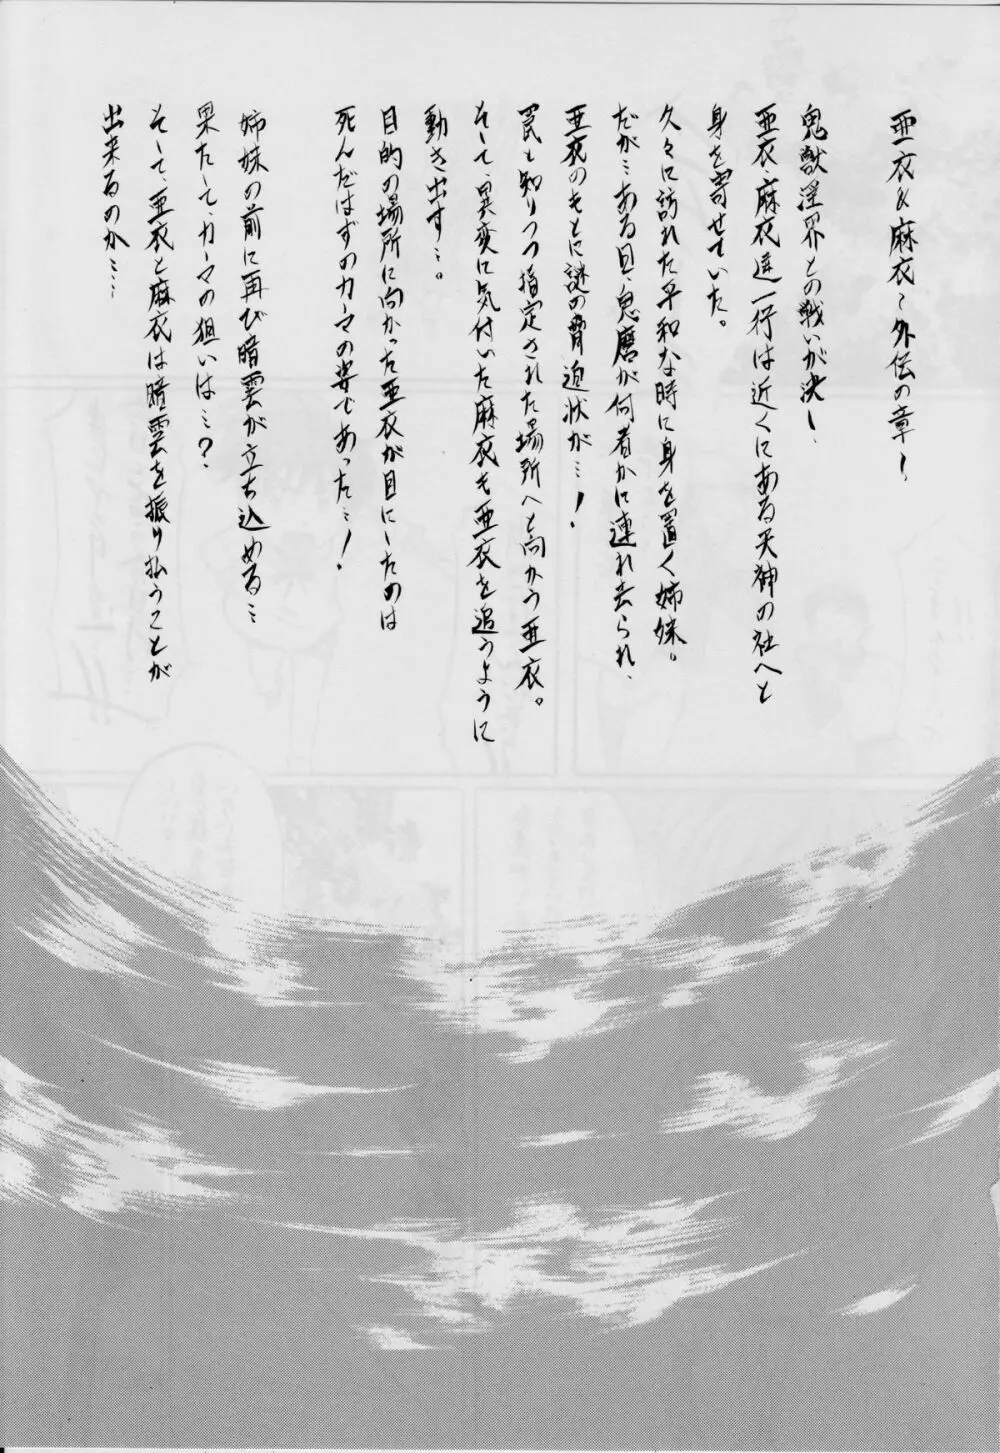 亜衣&麻衣〜外伝の章！
鬼獣淫界との戦いが決し、
亜衣・麻衣達一行は近くにある天神の社へと
身を寄せていた。
久々に訪れた平和な時に身を置く姉妹。
だが…ある日、鬼麿が何者かに連れ去られ、
亜衣のもとに謎の脅迫状が…！
罠と知りつつ指定された場所へと向かう亜衣。
そして、異変に気付いた麻衣も亜衣を追うように
動き出す…。
目的の場所に向かった亜衣が目にしたのは
死んだはずのカーマの姿であった…！
姉妹の前に再び暗雲が立ち込める…
果たして、カーマの狙いは…？
そして、亜衣と麻衣は暗雲を振り払うことが
出来るのか……